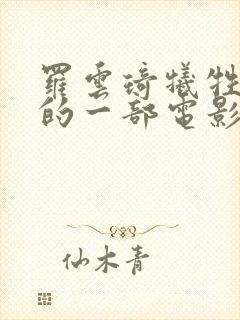 羅雲琦犧牲
的一部電影
仙木青